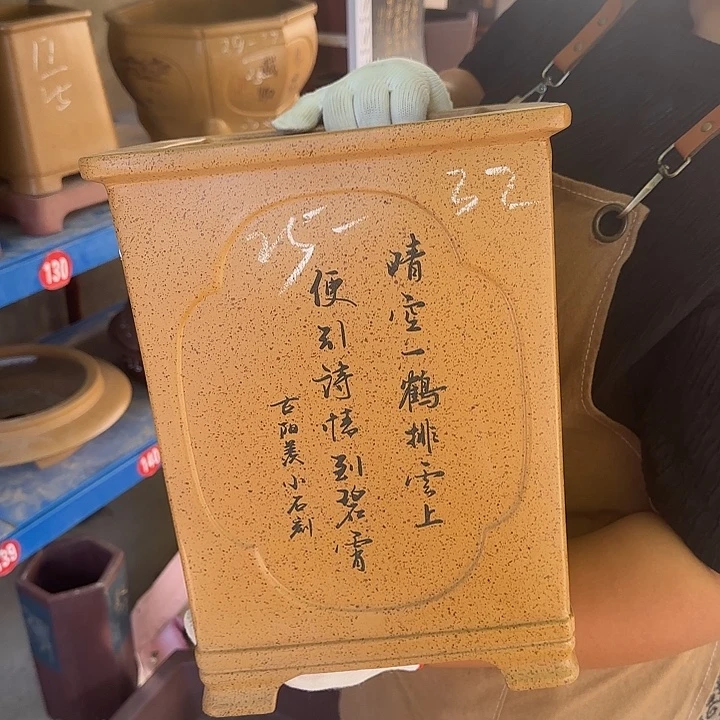 晴空一鹤排云上
便引诗情到碧霄
古阳羡小石刻
25-
32
29-
130
140
139